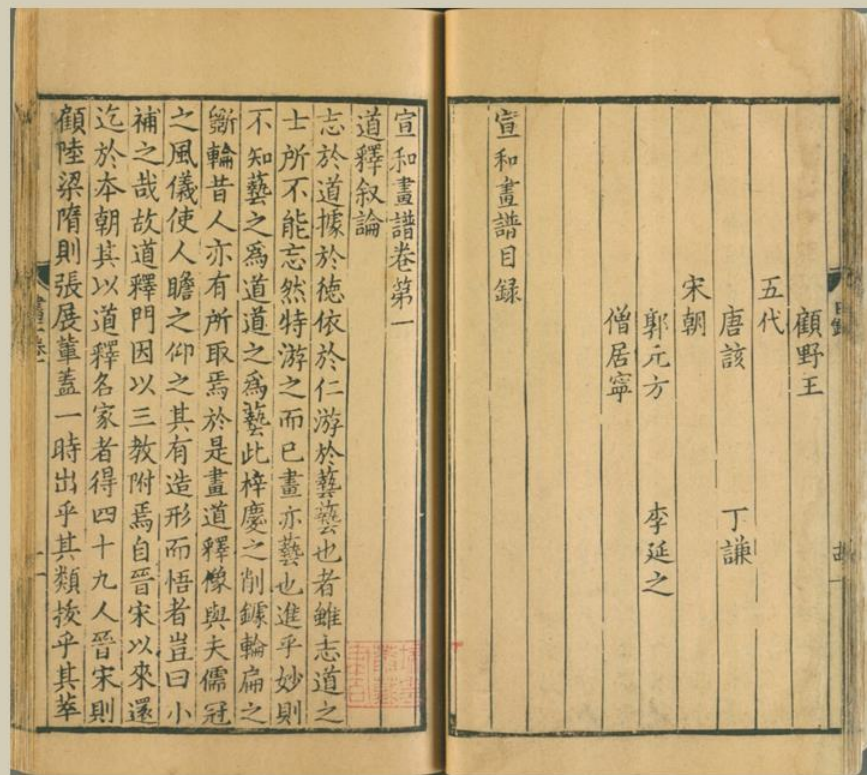 顧野王
五代
唐該 丁謙
宋朝
郭元方 李延之
僧居寧
宣和畫譜目録
宣和畫譜卷第一
道釋叙論
志於道據於徳依於仁游於藝藝也者雖志道之
士所不能忘然特游之而已畫亦藝也進乎妙則
不知藝之爲道道之爲藝此梓慶之削鐻輪扁之
斵輪昔人亦有所取焉於是畫道釋像與夫儒冠
之風儀使人瞻之仰之其有造形而悟者豈曰小
補之哉故道釋門因以三教附焉自晉宋以來還
迄於本朝其以道釋名家者得四十九人晉宋則
顧陸梁隋則張展軰蓋一時出乎其類拔乎其萃